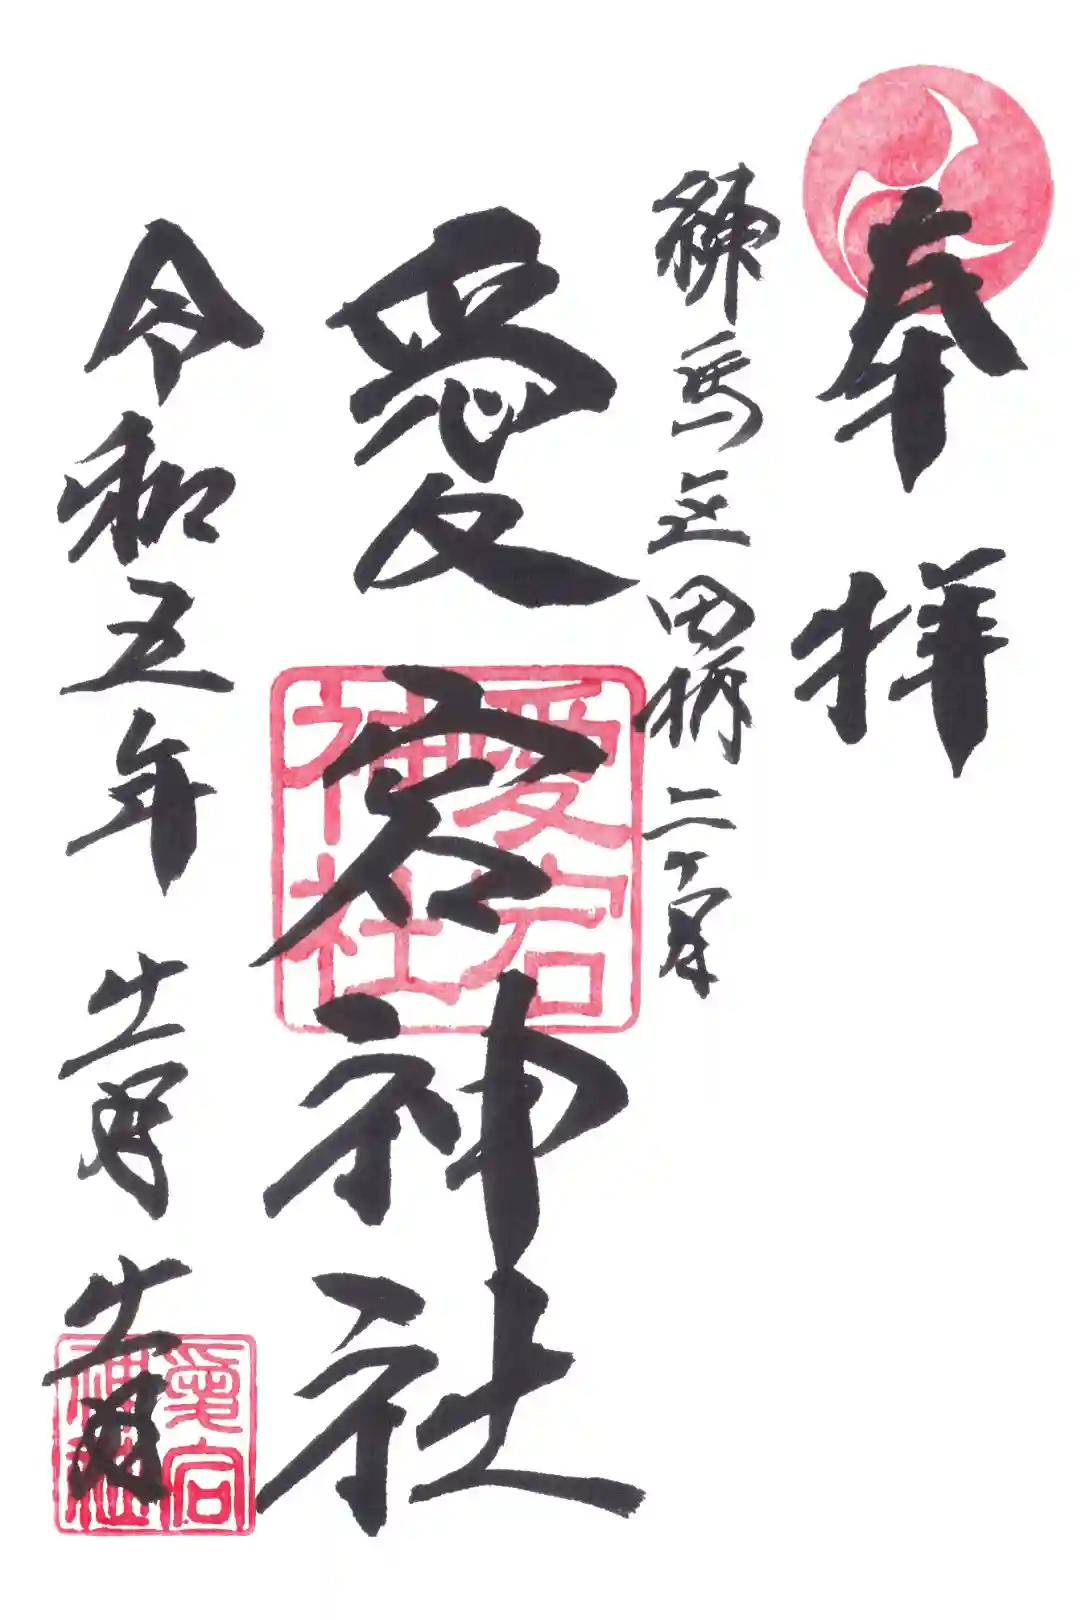 奉拝
練馬区田柄二丁目
愛宕神社
愛宕神社
令和五年 十一月 十一日
愛宕神社